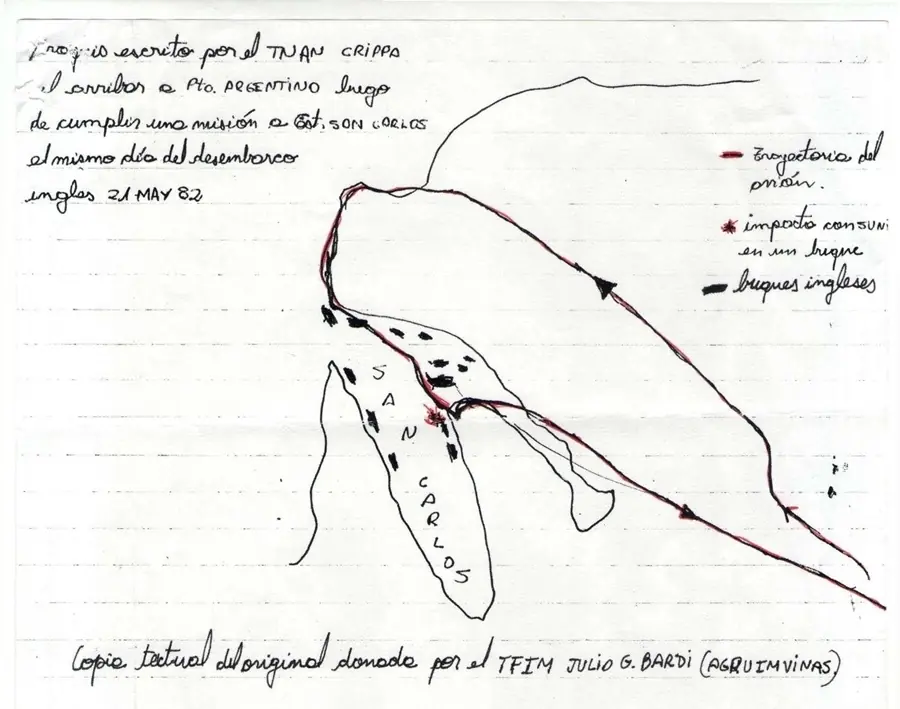 Croquis escrito por el TNAN CRIPPA
al arribar a Pto. ARGENTINO luego
de cumplir una misión a Est. SAN CARLOS
el mismo día del desembarco
ingles 21 MAY 82
Trayectoria del
avión.
impacto con SUNI
en un buque
buques ingleses
SAN
CARLOS
Copia textual del original donada por el TFIM JULIO G. BARDI (AGRUIMVINAS)